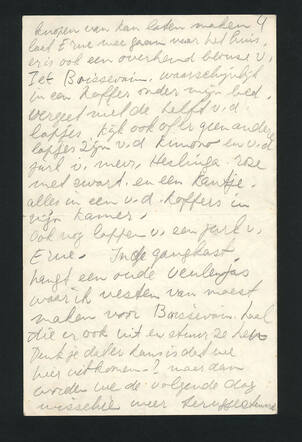 knopen van kan laten maken 4
laat Erne mee gaan naar het huis,
er is ook een overhemd blouse v.
Jet Boissevain, waarschijnlijk
in een koffer onder mijn bed.
vergeet niet de helft v.d.
lapjes. Kijk ook of er geen andere
lapjes zijn v.d. kimono en v.d.
jurk v. mevr. Heslinga. roze
met zwart, en een kantje.
alles in een v.d. koffers in
mijn kamer.
Ook nog lappen v. een jurk v.
Erne. In de gangkast.
hangt een oude
waar ik vesten van moest
maken voor Boissevain. haal
die er ook uit en stuur ze hen
Denk je dat er kans is dat we
hier uitkomen? maar dan
worden we de volgende dag
misschien weer teruggestuurd